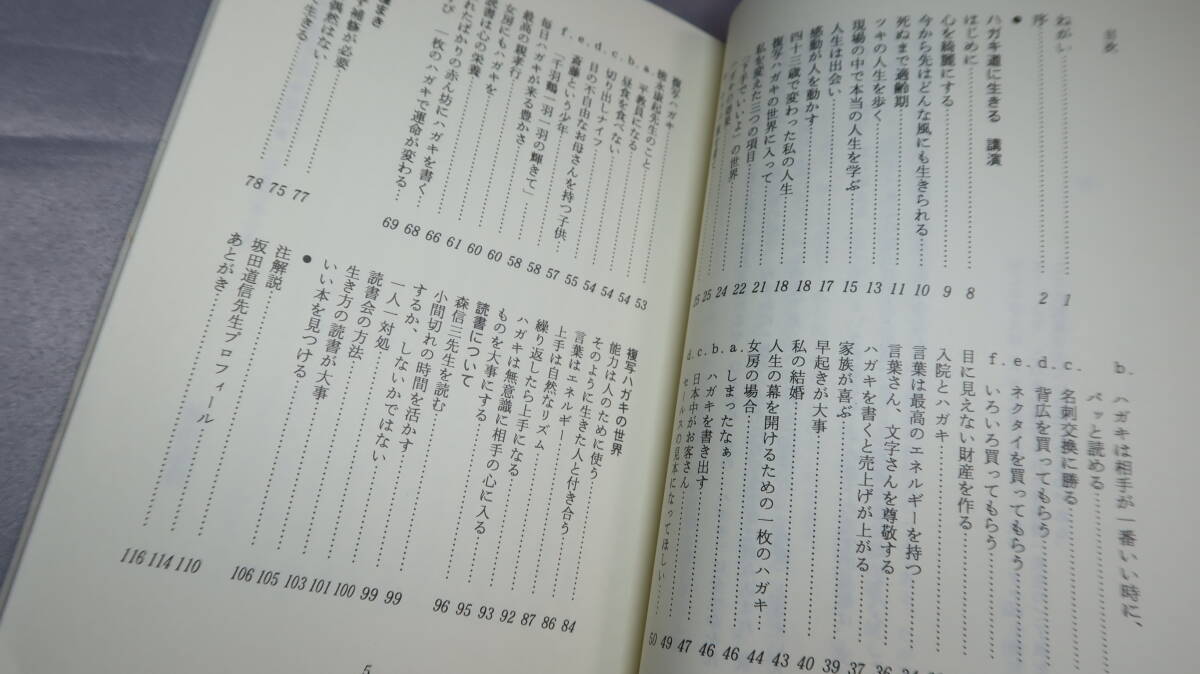 目次
ねがい……1
序……2
●
ハガキ道に生きる 講演
はじめに……8
心を綺麗にする……9
今から先はどんな風にも生きられる……10
死ぬまで適齢期……11
ツキの人生を歩く……13
現場の中で本当の人生を学ぶ……15
人生は出会い……17
感動が人を動かす……18
四十三歳で変わった私の人生……18
複写ハガキの世界に入って……21
私を変えた三つの項目……22
「下手でいいよ」の世界……24
b. ハガキは相手が一番いい時に、
パッと読める
c. 名刺交換に勝る
d. 背広を買ってもらう
e. ネクタイを買ってもらう
f. いろいろ買ってもらう
目に見えない財産を作る
入院とハガキ
言葉は最高のエネルギーを持つ
言葉さん、文字さんを尊敬する……36
ハガキを書くと売上げが上がる……37
家族が喜ぶ……39
早起きが大事……40
私の結婚……43
人生の幕を開けるための一枚のハガキ……44
女房の場合……46
a. しまったなぁ……46
b. ハガキを書き出す……47
c. 日本中がお客さん……49
d. セールスの見本になってほしい……50
複写ハガキ……53
徳永康起先生のこと……54
a. 平教員になる……54
b. 昼食を食べない……54
c. 切り出しナイフ……55
d. 目の不自由なお母さんを持つ子供……57
e. 斎藤という少年……58
f. 「千羽鶴一羽一羽の輝きて」……58
毎日ハガキが来る豊かさ……60
最高の親孝行……60
女房にもハガキを……61
読書は心の栄養……66
れたばかりの赤ん坊にハガキを書く……68
び 一枚のハガキで運命が変わる……69
種まき
補修が必要……77
偶然はない……75
生きる……78
複写ハガキの世界
能力は人のために使う……84
そのように生きた人と付き合う……86
言葉はエネルギー……87
上手は自然なリズム……92
繰り返したら上手になる……93
ハガキは無意識に相手の心に入る……95
ものを大事にする……96
読書について
森信三先生を読む……99
小間切れの時間を活かす……99
するか、しないかではない……100
一人一対処……101
読書会の方法……103
生き方の読書が大事……105
いい本を見つける……106
●
注解説……110
坂田道信先生プロフィール……114
あとがき……116
5